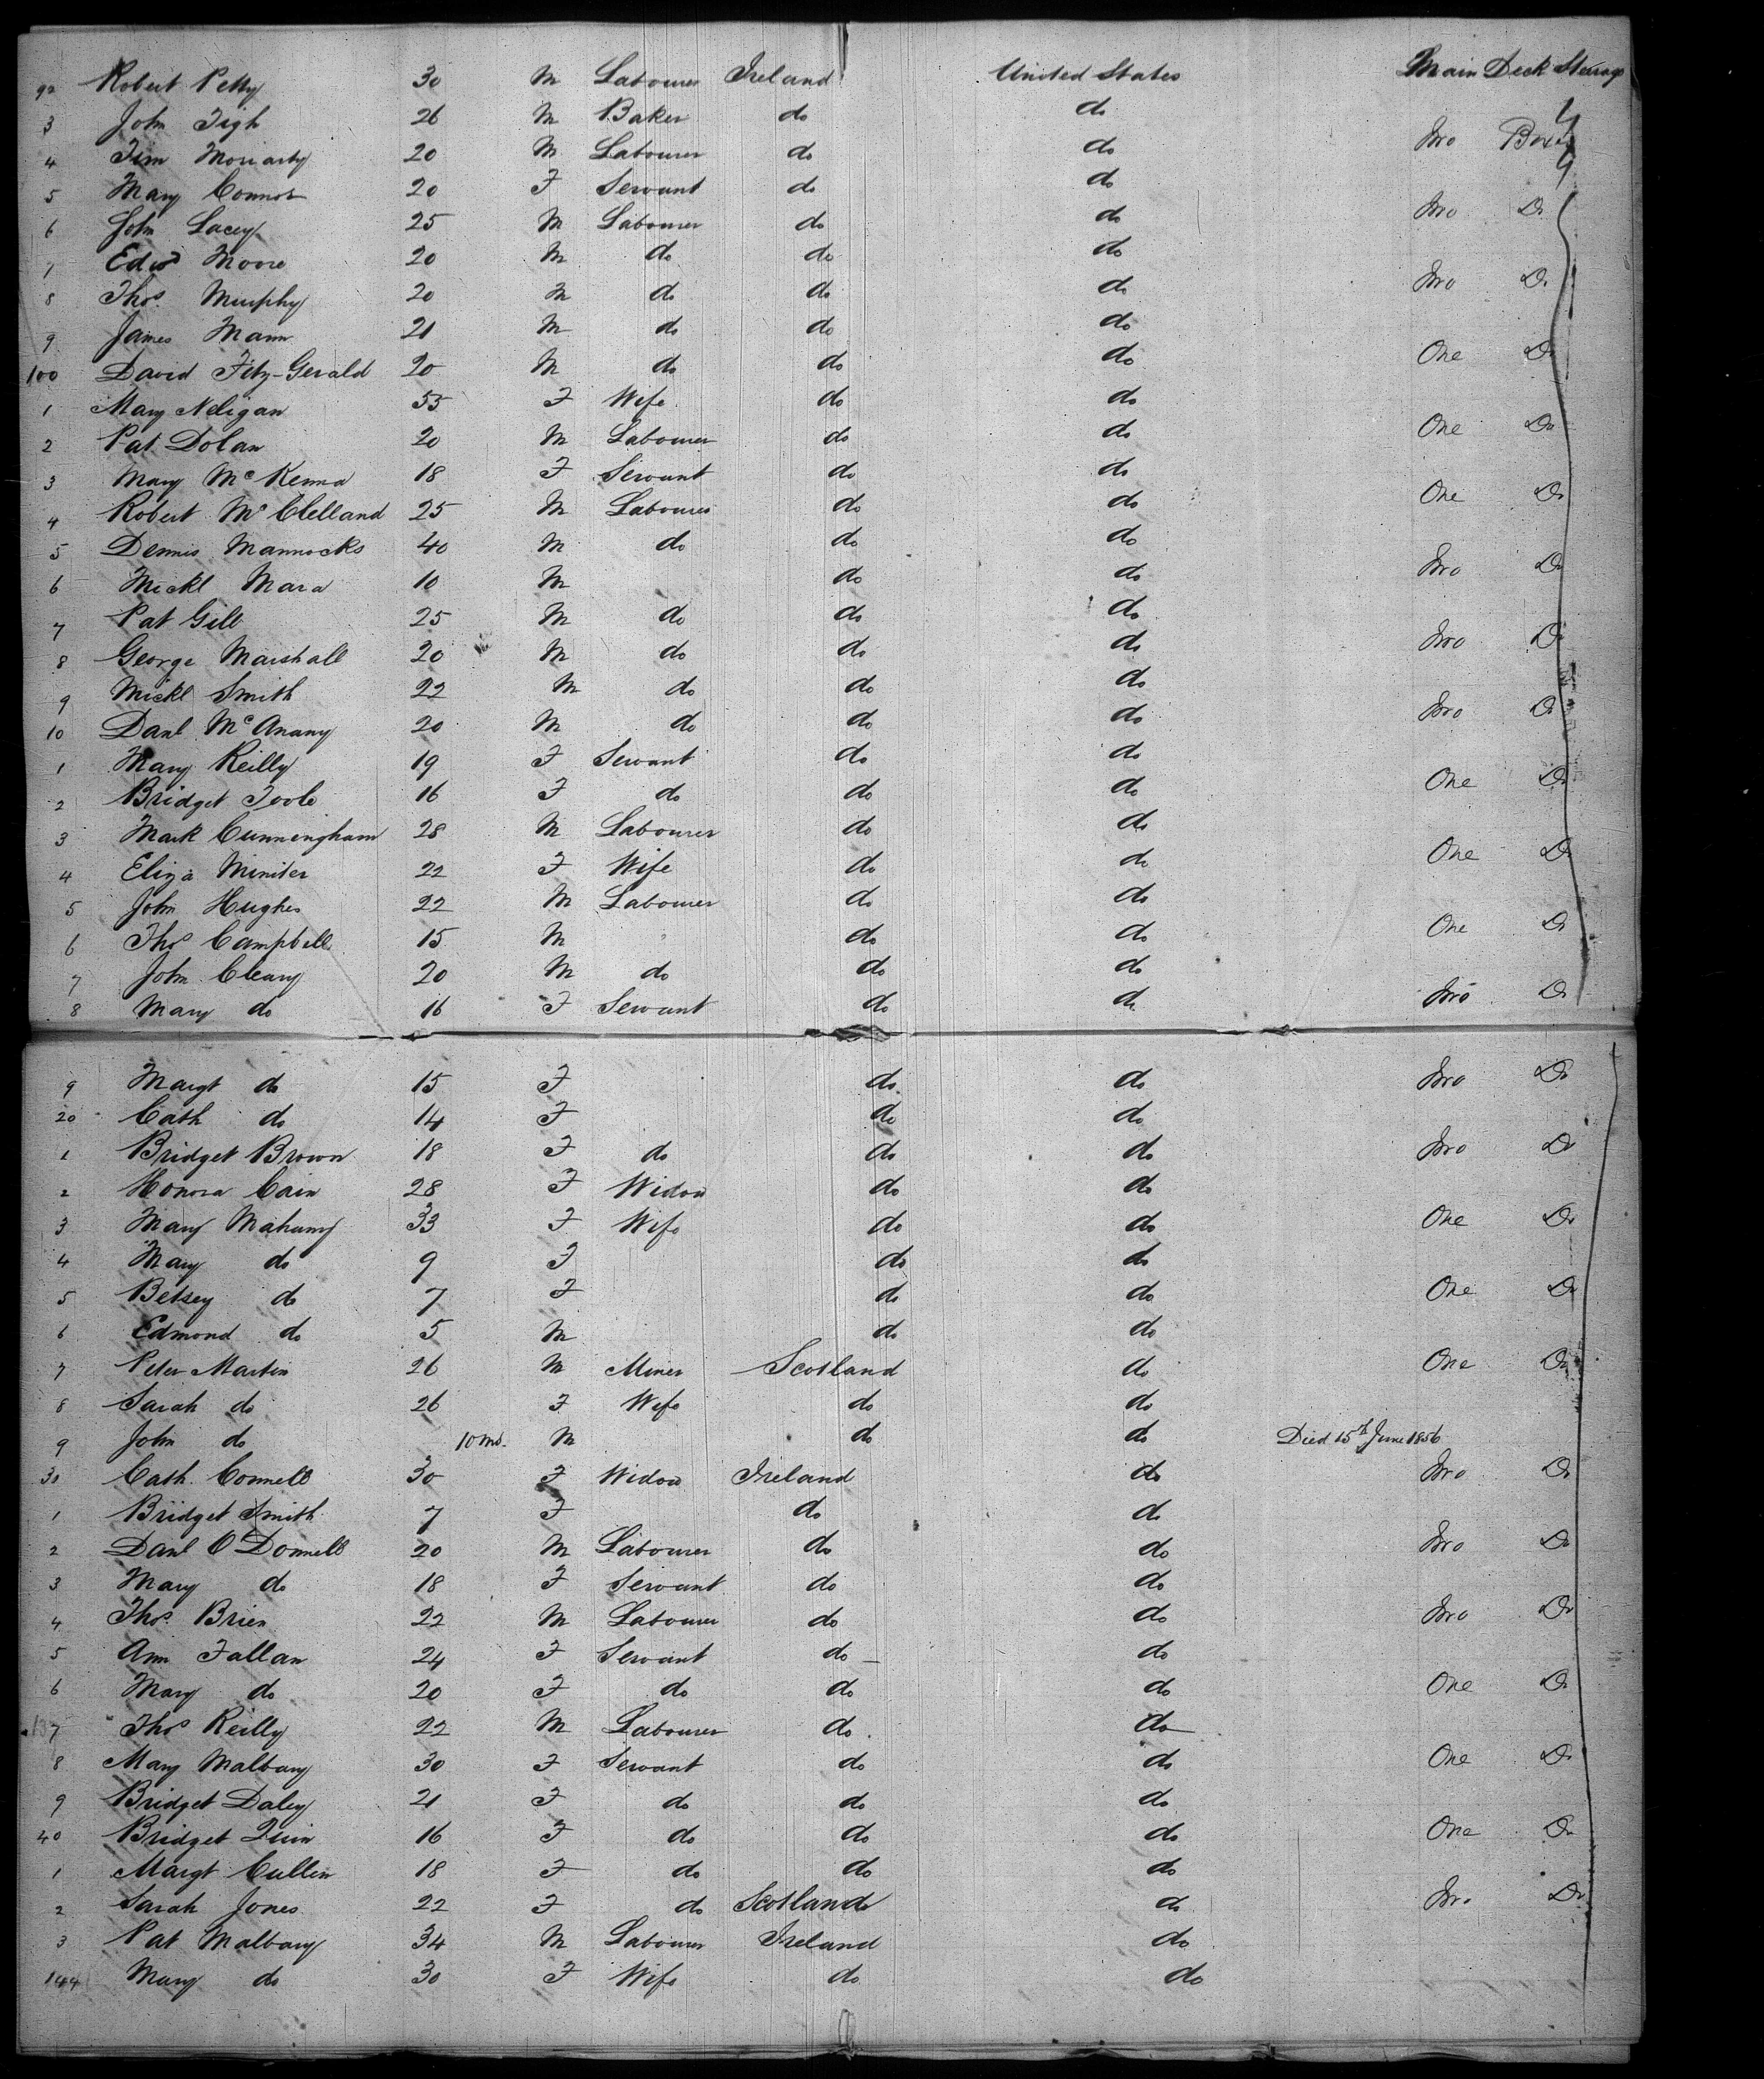 92 Robert Petty 30 M Labourer Ireland United States Main Deck Steerage
3 John Tigh 26 M Baker do do
4 Tim Moriarty 20 M Labourer do do Two Boxes
5 Mary Connor 20 F Servant do do
6 John Lacey 25 M Labourer do do Two Do
7 Edwd Moore 20 M do do do
8 Thos Murphy 20 M do do do Two Do
9 James Mann 21 M do do do
100 David Fitz-Gerald 20 M do do do One Do
1 Mary Neligan 55 F Wife do do
2 Pat Dolan 20 M Labourer do do One Do
3 Mary McKenna 18 F Servant do do
4 Robert McClelland 25 M Labourer do do One Do
5 Dennis Mannocks 40 M do do do
6 Mickl Mara 10 M do do Two Do
7 Pat Gill 25 M do do do
8 George Marshall 20 M do do do Two Do
9 Mickl Smith 22 M do do do
10 Danl McAnany 20 M do do do Two Do
1 Mary Reilly 19 F Servant do do
2 Bridget Toole 16 F do do do One Do
3 Mark Cunningham 28 M Labourer do do
4 Eliza Miniter 22 F Wife do do One Do
5 John Hughes 22 M Labourer do do
6 Thos Campbell 15 M do do One Do
7 John Cleary 20 M do do do
8 Mary do 16 F Servant do do Two Do
9 Margt do 15 F do do Two Do
20 Cath do 14 F do do
1 Bridget Brown 18 F do do do Two Do
2 Honora Cain 28 F Widow do do
3 Mary Mahany 33 F Wife do do One Do
4 Mary do 9 F do do
5 Betsey do 7 F do do One Do
6 Edmond do 5 M do do
7 Peter Martin 26 M Miner Scotland do One Do
8 Sarah do 26 F Wife do do
9 John do 10 mo. M do do Died 15th June 1856
30 Cath. Connell 30 F Widow Ireland do Two Do
1 Bridget Smith 7 F do do
2 Danl O'Donnell 20 M Labourer do do Two Do
3 Mary do 18 F Servant do do
4 Thos Brien 22 M Labourer do do Two Do
5 Ann Fallan 24 F Servant do do
6 Mary do 20 F do do do One Do
7 Thos Reilly 22 M Labourer do do
8 Mary Malbary 30 F Servant do do One Do
9 Bridget Daley 21 F do do do
40 Bridget Quin 16 F do do do One Do
1 Margt Cullen 18 F do do do
2 Sarah Jones 22 F do Scotland do Two Do
3 Pat Malbary 34 M Labourer Ireland do
144 Mary do 30 F Wife do do